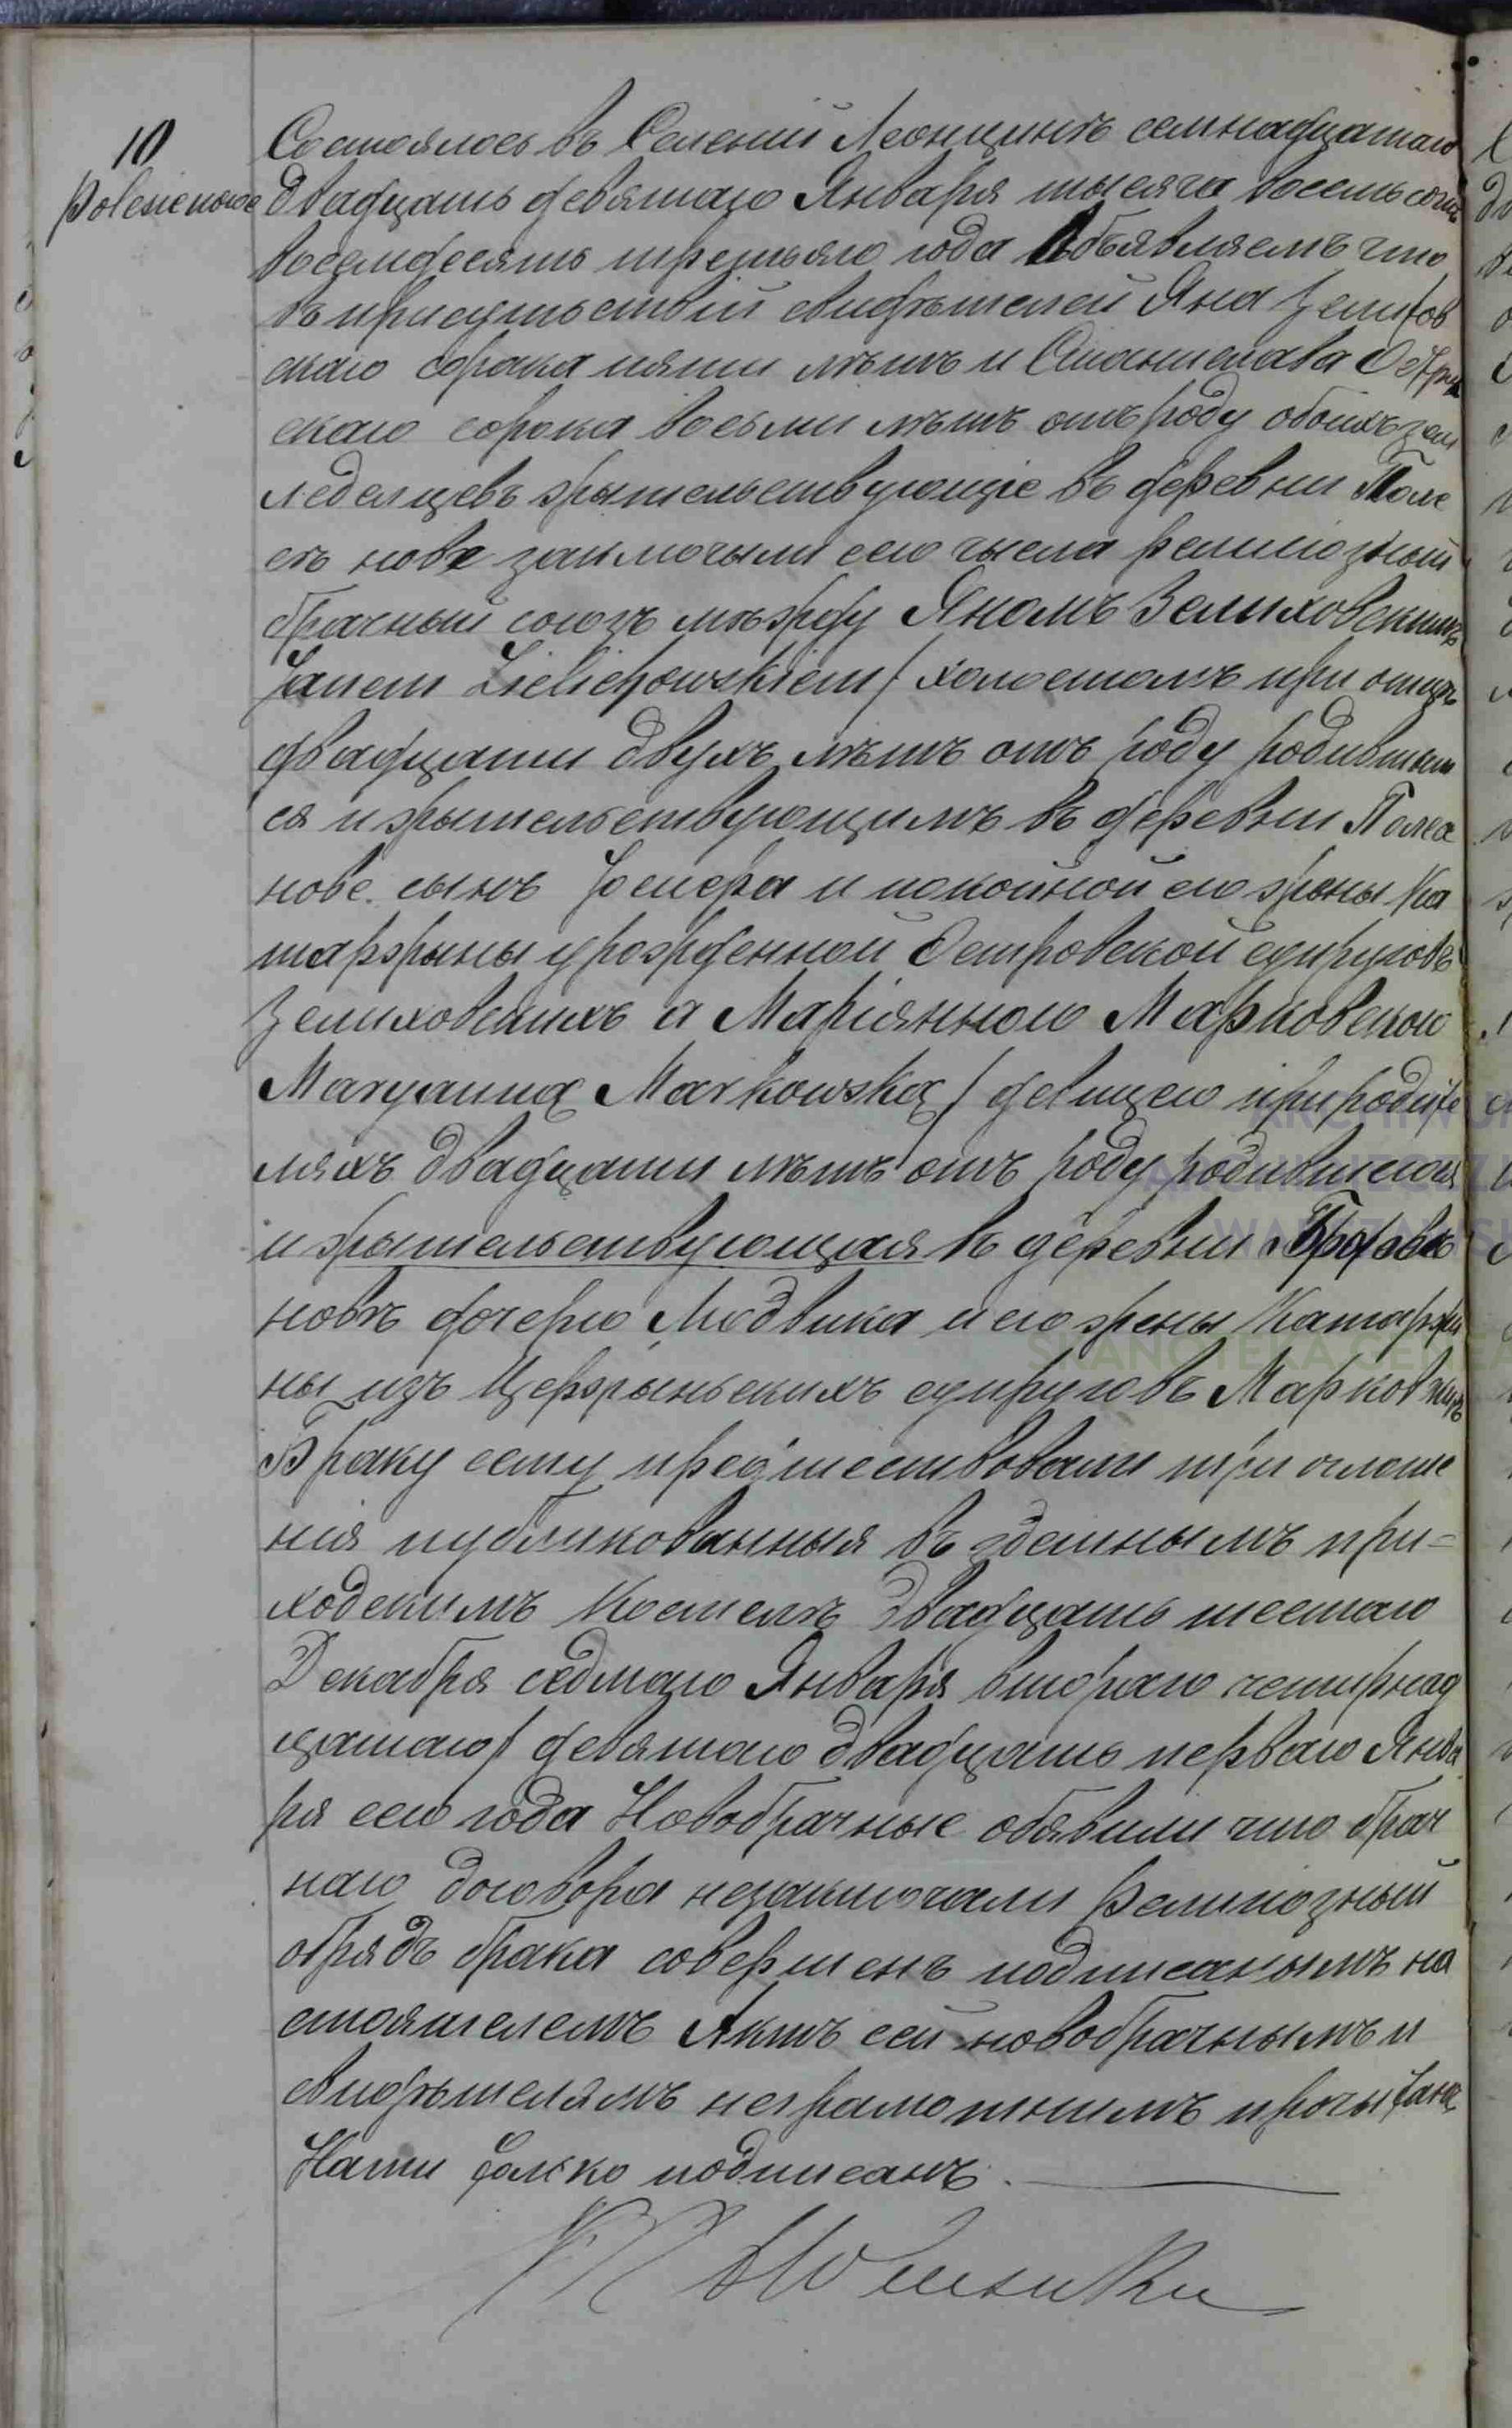 10
Polesie nowe
Состоялось въ Селеніи Леонцинъ семнадцатаго
двадцать девятаго Января тысяча восемь сотъ
восемдесятъ третьяго года Объявляемъ что
въ присутствіи свидѣтелей Яна Зелихов
скаго сорока пяти лѣтъ и Станислава Остров
скаго сорока восьми лѣтъ отъ роду обоихъ зем
леделцевъ жительствующіе въ деревни Поле
сѣ нове заключили сего числа религіозный
брачный союзъ мѣжду Яномъ Зелиховскимъ
Janem Zielichowskiem/ холостомъ при отцѣ
двадцати двухъ лѣтъ отъ роду родивтым
ся и жительствующимъ въ деревни Полеся
нове. сынъ Іосефа и покойной его жены Ка
таржины урожденной Островской супруговъ
Зелиховскихъ а Маріянною Марковскою
Maryanną Markowską/ девицею при родите
ляхъ двадцати лѣтъ отъ роду родившеюся
и жительствующая въ деревни
новѣ дочерю Людвика и его жены Катаржи
ны изъ Цержиньскихъ супруговъ Марковскихъ
Браку сему предшествовали три оглаше
нія публикованныя въ здешнымъ при-
ходскимъ Костелѣ двадцать шестаго
Декабря седмаго Января втораго четирнад
цатаго/ девятаго двадцать перваго Янва
ря сего года Новобрачные обявили что брач
наго договора незаключали Религіозный
обрядъ брака совершенъ подписанымъ на
стоятелемъ Актъ сей новобрачнымъ и
свидѣтелямъ неграмотнымъ прочытанъ
Нами только подписанъ.